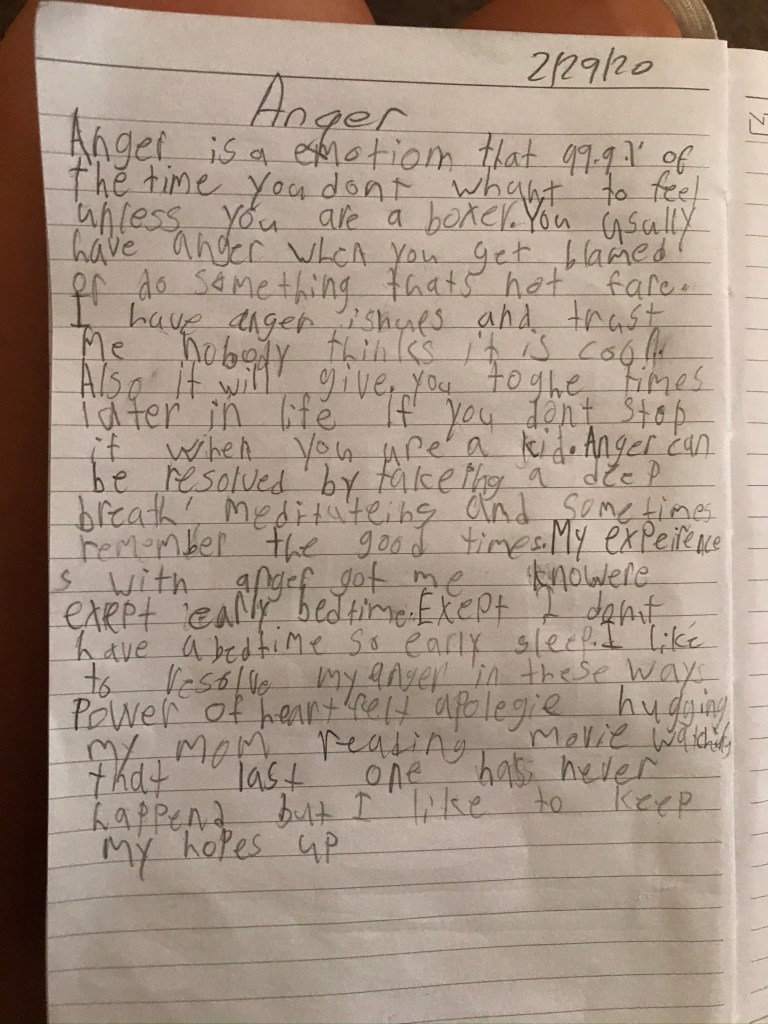 2/29/20
Anger
Anger is a emotiom that 99.9% of
the time you dont whant to feel
unless you are a boxer. You usally
have anger when you get blamed
or do something thats not fare.
I have anger ishues and trust
me nobody thinks it is cool.
Also it will give you toghe times
later in life if you dont stop
it when you are a kid. Anger can
be resolved by takeing a deep
breath, medituteing and sometimes
remember the good times. My expeirence
s with anger got me knowere
exept early bedtime. Exept I don't
have a bedtime so early sleep. I like
to resolve my anger in these ways
Power of heart felt apolegie hugging
my mom reading movie watching
that last one has never
happend but I like to keep
my hopes up